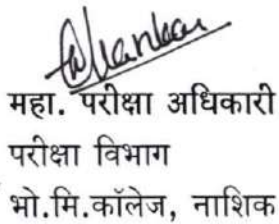 महा. परीक्षा अधिकारी
परीक्षा विभाग
भो.मि.कॉलेज, नाशिक